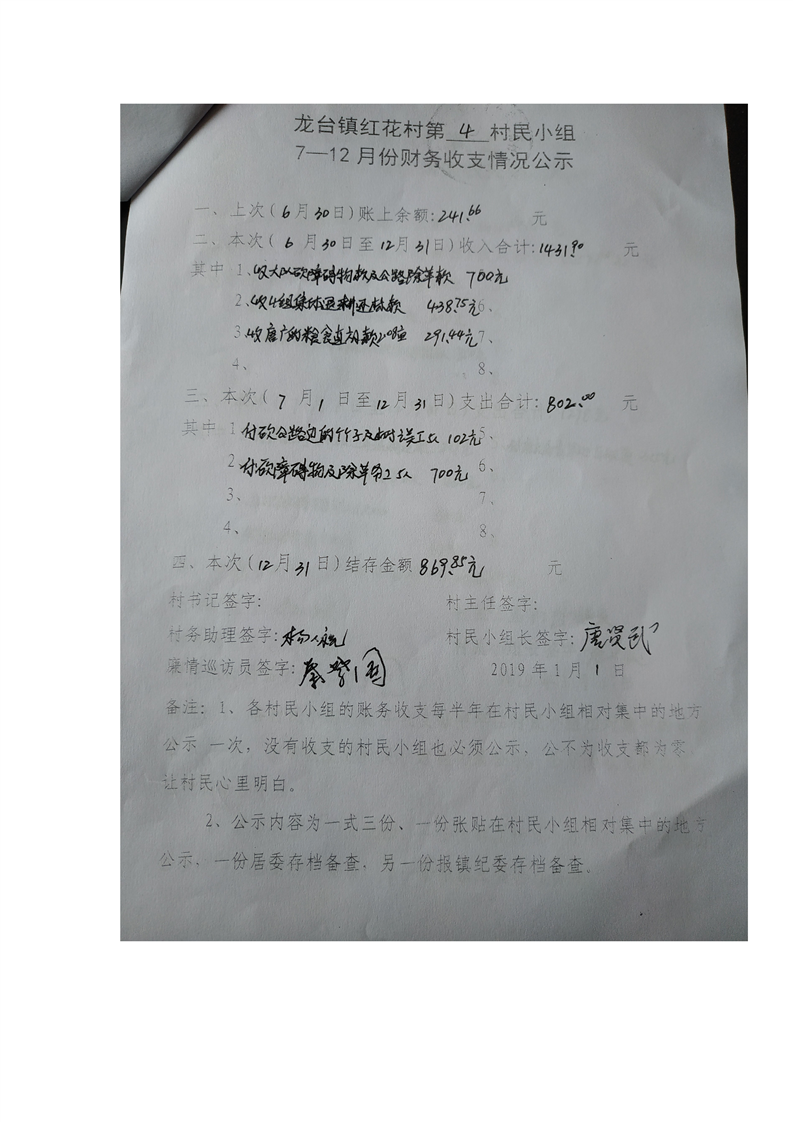 龙台镇红花村第 4 村民小组
7—12月份财务收支情况公示
一、上次(6月30日)账上余额:241.66 元
二、本次( 6 月30日至12月31日)收入合计:1431.90 元
其中 1、收大队砍障碍物款及公路除草款 700元
2、收4组集体退耕还林款 438.75元 6、
3、收唐广的粮食直补款2.08亩 291.44元 7、
4、 8、
三、本次( 7 月 1 日至12月31日)支出合计:802.00 元
其中 1、付砍公路边的竹子及 误工 102元 5、
2、付砍障碍物及除草 700元 6、
3、 7、
4、 8、
四、本次(12月31日)结存金额 869.85元 元
村书记签字: 村主任签字:
村务助理签字: 村民小组长签字:唐贤武
廉情巡访员签字:秦 国 2019年1月 1 日
备注:1、各村民小组的账务收支每半年在村民小组相对集中的地方
公示 一次,没有收支的村民小组也必须公示,公不为收支都为零,
让村民心里明白。
2、公示内容为一式三份、一份张贴在村民小组相对集中的地方
公示,一份居委存档备查,另一份报镇纪委存档备查。